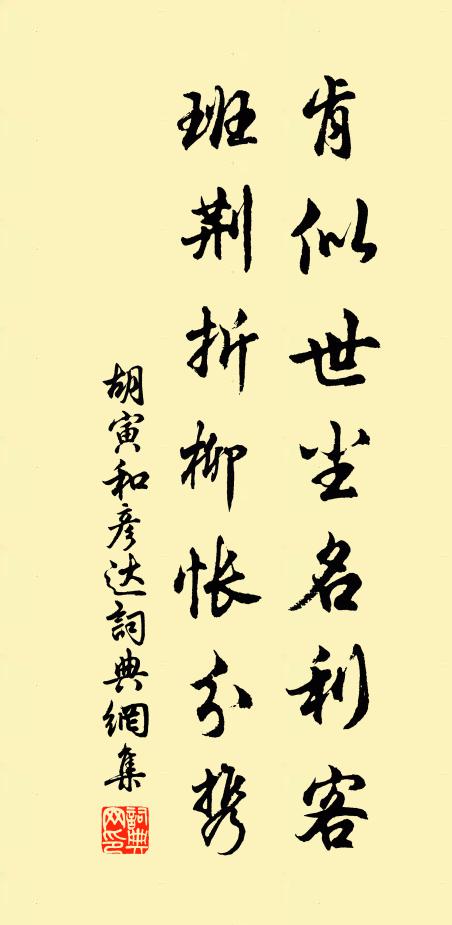 肯似世尘名利客
班荆折柳怅分携
胡寅和彦达詞典網集
詞典网印